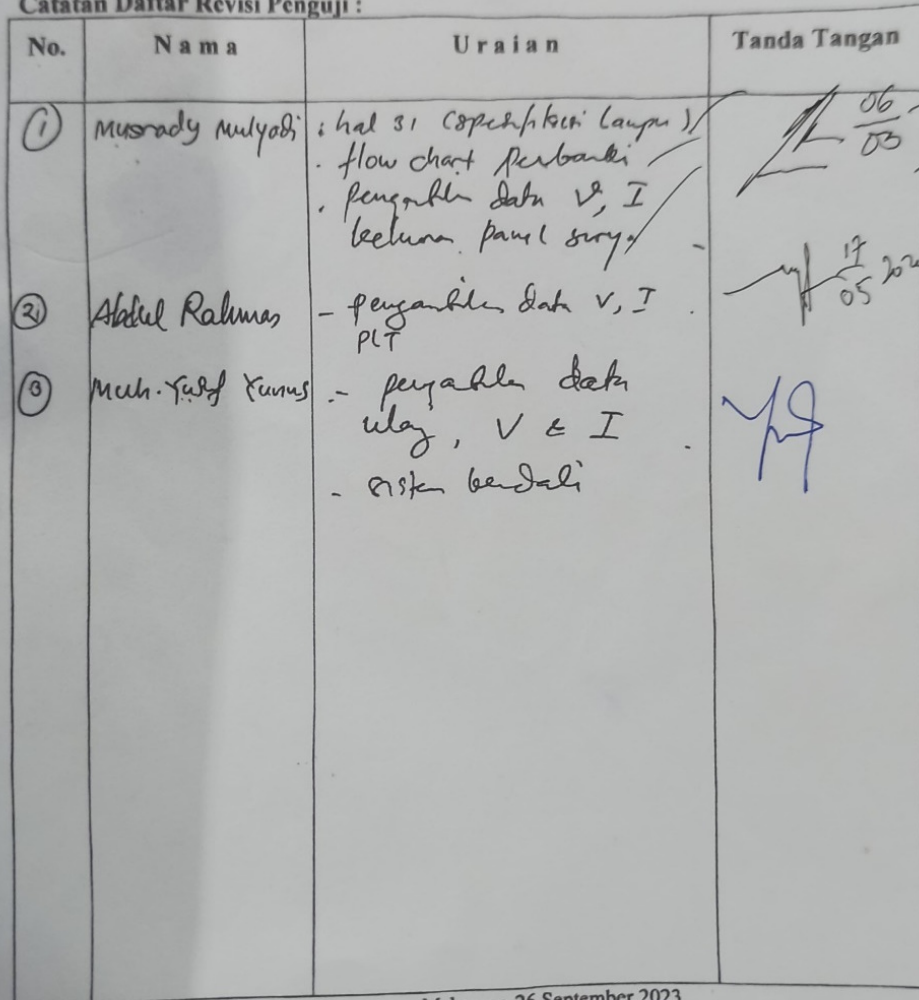 Catatan Daftar Revisi Penguji :
No. Nama Uraian Tanda Tangan
1 Musrady Mulyadi : hal 31 (spesifikasi lampu) 06/03
. flow chart perbaiki
. pengambilan data V, I
keluaran panel surya
2 Abdul Rahman - pengambilan data V, I 17/05
PLT
3 Muh. Yusuf Yunus - pengambilan data
ulang, V & I
- sistem kendali
26 September 2023